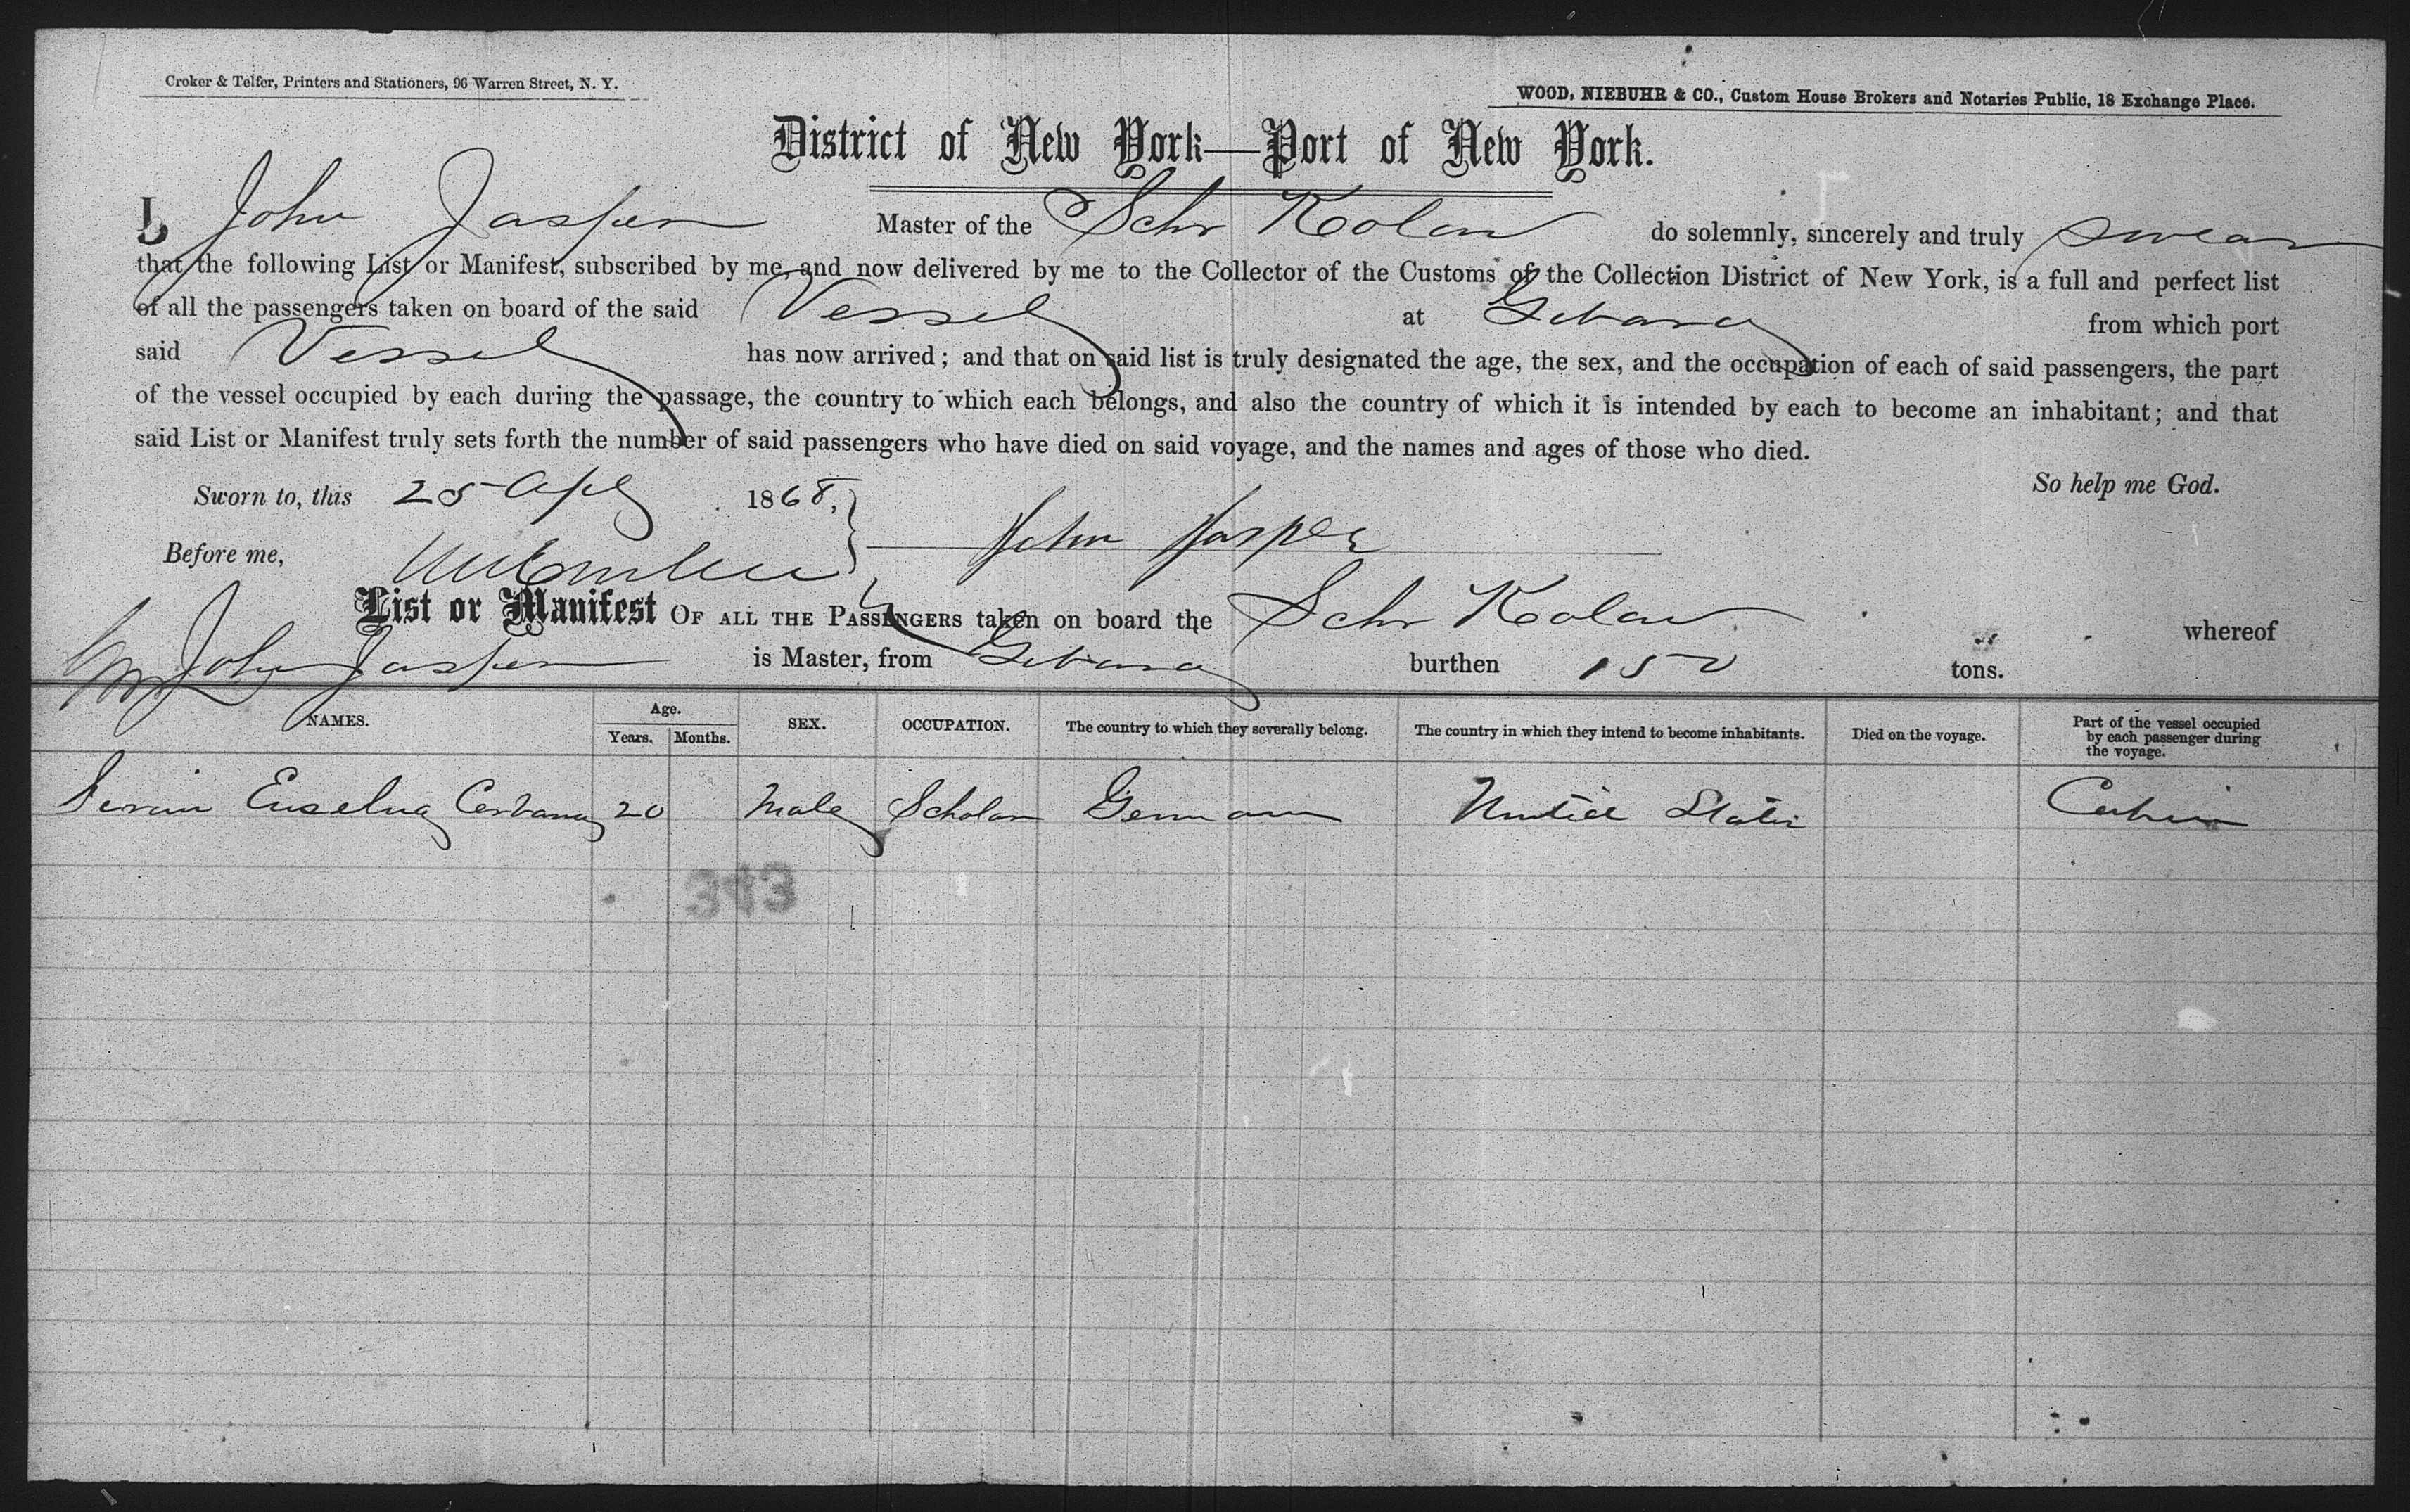 Croker & Telfer, Printers and Stationers, 96 Warren Street, N. Y.
WOOD, NIEBUHR & CO., Custom House Brokers and Notaries Public, 18 Exchange Place.
District of New York—Port of New York.
I, John Jasper Master of the Schr Kolon do solemnly, sincerely and truly swear
that the following List or Manifest, subscribed by me, and now delivered by me to the Collector of the Customs of the Collection District of New York, is a full and perfect list
of all the passengers taken on board of the said Vessel at Gibara from which port
said Vessel has now arrived; and that on said list is truly designated the age, the sex, and the occupation of each of said passengers, the part
of the vessel occupied by each during the passage, the country to which each belongs, and also the country of which it is intended by each to become an inhabitant; and that
said List or Manifest truly sets forth the number of said passengers who have died on said voyage, and the names and ages of those who died.
So help me God.
Sworn to, this 25 Apl 1868,
John Jasper
Before me,
List or Manifest OF ALL THE PASSENGERS taken on board the Schr Kolon whereof
John Jasper is Master, from Gibara burthen 150 tons.
NAMES. Age. Years. Months. SEX. OCCUPATION. The country to which they severally belong. The country in which they intend to become inhabitants. Died on the voyage. Part of the vessel occupied by each passenger during the voyage.
20 Male Scholar German United States Cabin
343